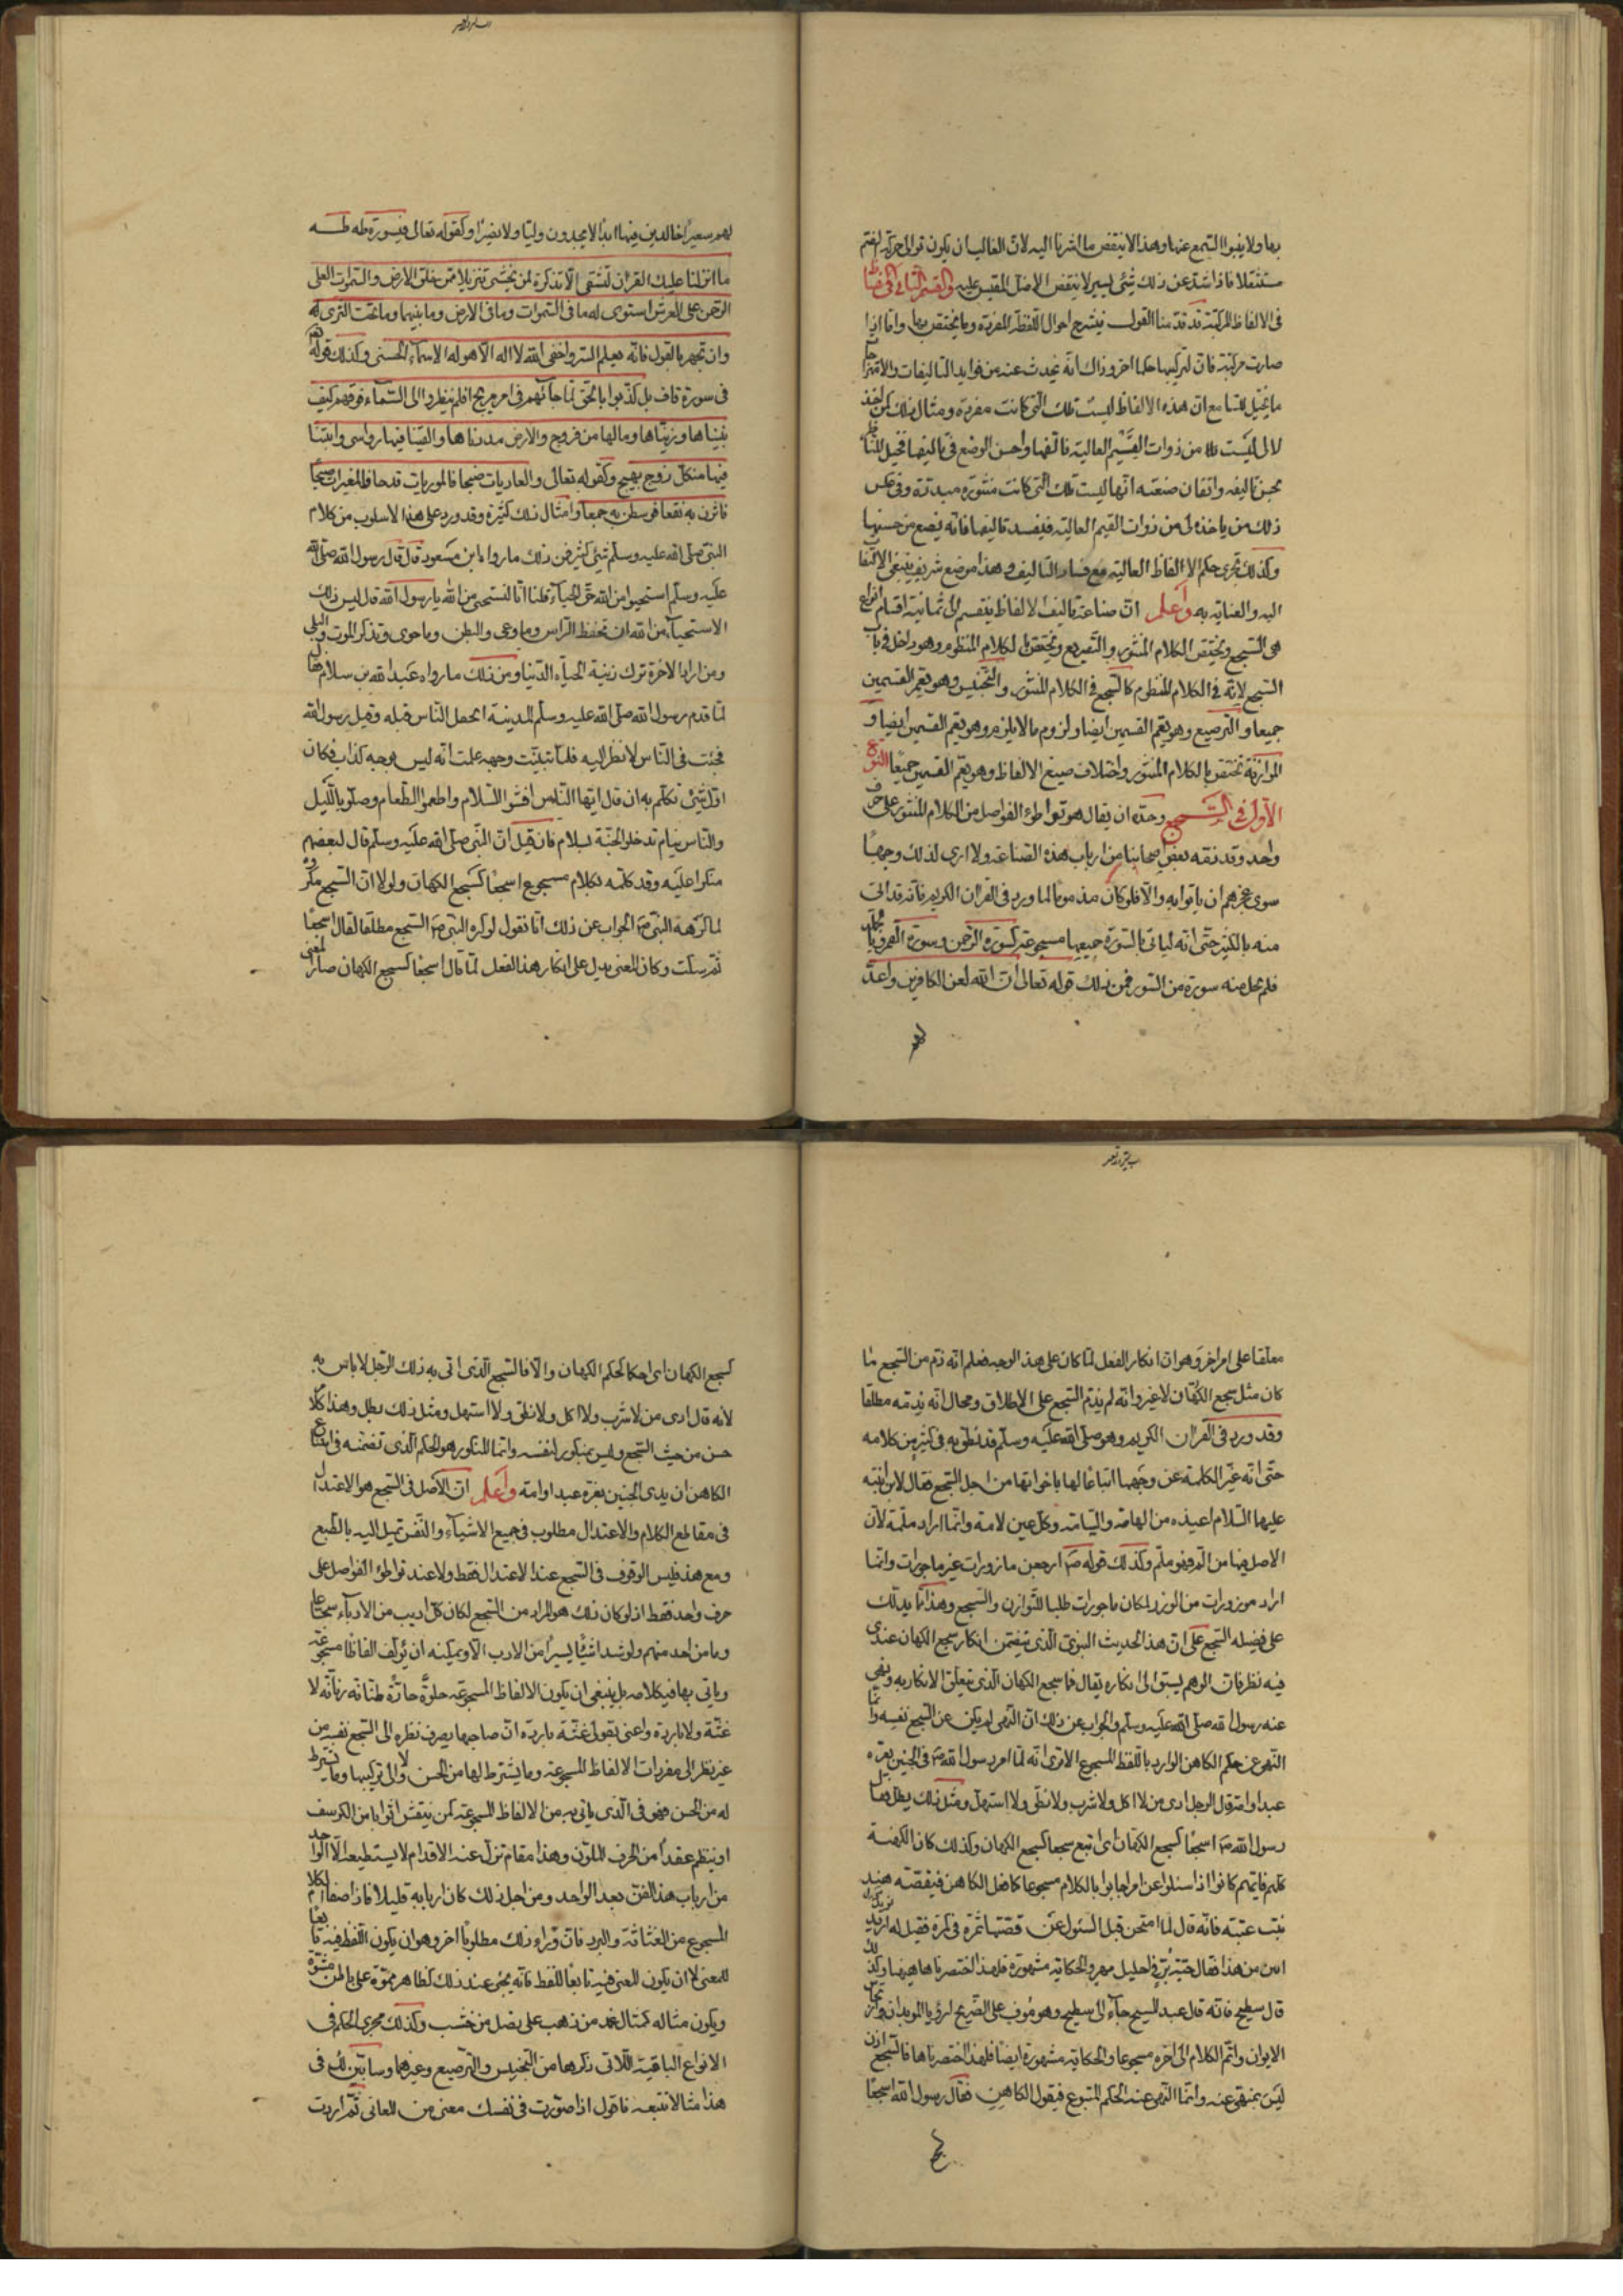 بها ولا ينبوا السمع عنها وهذا لا ينتقض ما اشرنا اليه لان الغالب ان يكون توالى حركة الضم
مستثقلا فاذا شذ عن ذلك شئ يسير لا ينتقض الاصل المقيس عليه القسم الثانى
فى الالفاظ المركبة قد قدمنا القول فى شرح احوال اللفظة المفردة وما يختص بها واما اذا
صارت مركبة فان لتركيبها حكما اخر وذاك انه يحدث عنه من فوايد التاليفات والامتزاجات
ما يخيل للسامع ان هذه الالفاظ ليست تلك التى كانت مفردة ومثال ذلك كمن اخذ
لالى ليست من ذوات القيم العالية فالفها واحسن الوضع فى تاليفها فخيل للناظر
بحسن تاليفه واتقان صنعته انها ليست تلك التى كانت منثورة مبددة وفى عكس
ذلك من ياخذ لالى من ذوات القيم العالية فيفسد تاليفها فانه يضع من حسنها
وكذلك يجرى حكم الالفاظ العالية مع فساد التاليف وهذا موضع شريف ينبغى الالتفات
اليه والعناية به واعلم ان صناعة تاليف الالفاظ ينقسم الى ثمانية اقسام انواع
هى السجع ويختص الكلام المنثور والتصريع ويختص الكلام المنظوم وهو داخل فى باب
السجع لانه فى الكلام المنظوم كالسجع فى الكلام المنثور والتجنيس وهو يعم القسمين
جميعا والترصيع وهو يعم القسمين ايضا ولزوم ما لا يلزم وهو يعم القسمين ايضا و
الموازنة تختص بالكلام المنثور واختلاف صيغ الالفاظ وهو يعم القسمين جميعا النوع
الاول فى السجع وحده ان يقال هو تواطؤ الفواصل من الكلام المنثور على حرف
واحد وقد ذمه بعض اصحابنا من ارباب هذه الصناعة ولا ارى لذلك وجها
سوى عجزهم ان ياتوا به والا فلو كان مذموما لما ورد فى القران الكريم فانه قد اتى
منه بالكثير حتى انه لياتى بالسورة جميعها مسجوعة كسورة الرحمن وسورة القمر وبالجملة
فلم تخل منه سورة من السور فمن ذلك قوله تعالى ان الله لعن الكافرين واعد
لهم
لهم سعيرا خالدين فيها ابدا لا يجدون وليا ولا نصيرا وكقوله تعالى فى سورة طه طه
ما انزلنا عليك القران لتشقى الا تذكرة لمن يخشى تنزيلا ممن خلق الارض والسموات العلى
الرحمن على العرش استوى له ما فى السموات وما فى الارض وما بينهما وما تحت الثرى
وان تجهر بالقول فانه يعلم السر واخفى الله لا اله الا هو له الاسماء الحسنى وكذلك قوله
فى سورة قاف بل كذبوا بالحق لما جائهم فهم فى امر مريج افلم ينظروا الى السماء فوقهم كيف
بنيناها وزيناها وما لها من فروج والارض مددناها والقينا فيها رواسى وانبتنا
فيها من كل زوج بهيج وكقوله تعالى والعاديات ضبحا فالموريات قدحا فالمغيرات صبحا
فاثرن به نقعا فوسطن به جمعا وامثال ذلك كثيرة وقد ورد على هذا الاسلوب من كلام
النبى صلى الله عليه وسلم شئ كثير فمن ذلك ما رواه ابن مسعود قال قال رسول الله صلى الله
عليه وسلم استحيوا من الله حق الحياء قلنا انا لنستحى من الله يا رسول الله قال ليس ذلك
الاستحياء من الله ان تحفظ الراس وما وعى والبطن وما حوى وتذكر الموت والبلى
ومن اراد الاخرة ترك زينة الحياة الدنيا ومن ذلك ما رواه عبد الله بن سلام فقال
لما قدم رسول الله صلى الله عليه وسلم المدينة انجفل الناس قبله وقيل رسول الله
فجئت فى الناس لانظر اليه فلما تبينت وجهه علمت انه ليس بوجه كذاب فكان
اول شئ تكلم به ان قال ايها الناس افشوا السلام واطعموا الطعام وصلوا بالليل
والناس نيام تدخلوا الجنة بسلام فان قيل ان النبى صلى الله عليه وسلم قال لبعضهم
منكرا عليه وقد كلمه بكلام مسجوع اسجعا كسجع الكهان ولولا ان السجع مكروه
لما كرهه النبى الجواب عن ذلك انا نقول لو كره النبى السجع مطلقا لقال اسجعا
ثم سكت وكان المعنى يدل على انكار هذا الفعل لما قال اسجعا كسجع الكهان صار المعنى
معلقا على امر اخر وهو ان انكار الفعل لما كان على هذا الوجه فعلم انه ذم من السجع ما
كان مثل سجع الكهان لا غير وانه لم يذم السجع على الاطلاق ومحال انه يذمه مطلقا
وقد ورد فى القران الكريم وهو صلى الله عليه وسلم قد نطق به فى كثير من كلامه
حتى انه غير الكلمة عن وجهها اتباعا لها باخواتها من اجل السجع فقال لابن ابنته
عليها السلام اعيذه من الهامة والسامة وكل عين لامة وانما اراد ملمة لان
الاصل فيها من الم فهو ملم وكذلك قوله ارجعن مازورات غير ماجورات وانما
اراد موزورات من الوزر لمكان ماجورات طلبا للتوازن والسجع وهذا مما يدلك
على فضيلة السجع على ان هذا الحديث النبوى الذى يتضمن انكار سجع الكهان عندى
فيه نظر فان الوهم يسبق الى انكاره يقال فما سجع الكهان الذى يتعلق الانكار به ونهى
عنه رسول الله صلى الله عليه وسلم والجواب عن ذلك ان النهى لم يكن عن السجع نفسه وانما
النهى عن حكم الكاهن الوارد باللفظ المسجوع الا ترى انه لما امر رسول الله فى الجنين بغرة
عبد او امة قال الرجل ادى من لا اكل ولا شرب ولا نطق ولا استهل ومثل ذلك يطل فقال
رسول الله اسجعا كسجع الكهان اى اتبع سجعا كسجع الكهان وكذلك كان الكهنة
كلهم فانهم كانوا اذا سئلوا عن امر اجابوا بالكلام مسجوعا كما فعل الكاهن فى قصة هند
بنت عتبة فانه قال لما امتحن قبل السئول عن قصتها ثمرة فى كمرة فقيل له نريد
ابين من هذا فقال حبة بر فى احليل مهر والحكاية مشهورة فلهذا اختصرناها هيهنا وكذلك
قال سطيح فانه قال عبد المسيح جاء الى سطيح وهو موف على الضريح لرؤيا الموبذان وارتجاس
الايوان واتم الكلام الى اخره مسجوعا والحكاية مشهورة ايضا فلهذا اختصرناها فالسجع اذن
ليس بمنهى عنه وانما النهى عنه الحكم المتبوع فى قول الكاهن فقال رسول الله اسجعا
كسجع الكهان اى احكما كحكم الكهان والا فالسجع الذى اتى به ذلك الرجل لا باس به
لانه قال ادى من لا شرب ولا اكل ولا نطق ولا استهل ومثل ذلك يطل وهذا كلام
حسن من حيث السجع وليس بمنكور لنفسه وانما المنكور هو الحكم الذى تضمنه فى امتناع
الكاهن ان يدى الجنين بغرة عبد او امة واعلم ان الاصل فى السجع هو الاعتدال
فى مقاطع الكلام والاعتدال مطلوب فى جميع الاشياء والنفس تميل اليه بالطبع
ومع هذا فليس الوقوف فى السجع عند الاعتدال فقط ولا عند تواطؤ الفواصل على
حرف واحد فقط اذ لو كان ذلك هو المراد من السجع لكان كل اديب من الادباء سجاعا
وما من احد منهم ولو شدا شيئا يسيرا من الادب الا ويمكنه ان يؤلف الفاظا مسجوعة
وياتى بها فى كلامه بل ينبغى ان يكون الالفاظ المسجوعة حلوة حادة طنانة رنانة لا
غثة ولا باردة واعنى بقولى غثة باردة ان صاحبها يصرف نظره الى السجع نفسه من
غير نظر الى مفردات الالفاظ المسجوعة وما يشترط لها من الحسن ولا الى تركيبها وما يشترط
له من الحسن فهو فى الذى ياتى به من الالفاظ المسجوعة كمن ينقش اثوابا من الكرسف
او ينظم عقدا من الخرف الملون وهذا مقام تزل عنه الاقدام لا يستطيعه الا الواحد
من ارباب هذا الفن بعد الواحد ومن اجل ذلك كان اربابه قليلا فاذا صفا الكلام
المسجوع من الغثاثة والبرد فان وراء ذلك مطلوبا اخر وهو ان يكون اللفظ فيه تابعا
للمعنى لا ان يكون المعنى فيه تابعا للفظ فانه يجئ عند ذلك كظاهر مموه على باطن مشوه
ويكون مثاله كمثال غمد من ذهب على نصل من خشب وكذلك مجرى الحكم فى
الانواع الباقية اللاتى ذكرها من التجنيس والترصيع وغيرهما وسابين لك فى
هذا مثالا تتبعه فاقول اذا صورت فى نفسك معنى من المعانى ثم اردت